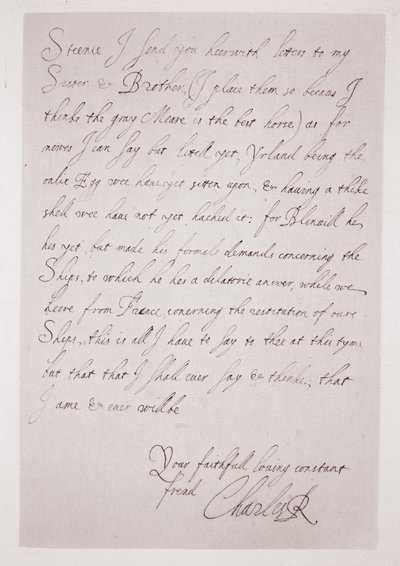 Steenie I send you heerwith letters to my
Sister & Brother, (I place them so becaus I
thinke the gray Meare is the best horse) as for
newes I can say but litell yet, Yrland being the
onlie Egg wee have yet sitten upon, & having a thike
shell wee have not yet hached it: for Blenvill he
his yet but made his formale demands concerning the
Ships, to which he hes a delatorie answer, while we
heere from France, conerning the restitution of oure
Ships, this is all I have to say to thee at this tyme
but that that I shall ever say & thinke, that
I ame & ever willbe
Your faithfull loving constant
frend Charles R